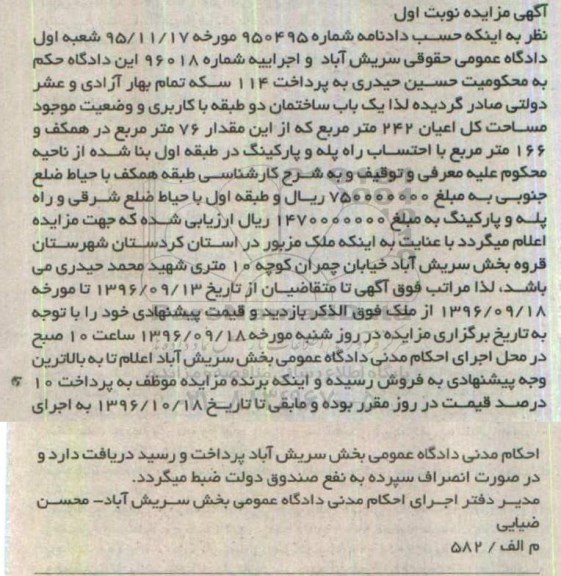 آگهی مزایده نوبت اول
نظر به اینکه حسب دادنامه شماره ۹۵۰۴۹۵ مورخه ۹۵/۱۱/۱۷ شعبه اول
دادگاه عمومی حقوقی سریش آباد و اجراییه شماره ۹۶۰۱۸ این دادگاه حکم
به محکومیت حسین حیدری به پرداخت ۱۱۴ سکه تمام بهار آزادی و عشر
دولتی صادر گردیده لذا یک باب ساختمان دو طبقه با کاربری و وضعیت موجود
مساحت کل اعیان ۲۴۲ متر مربع که از این مقدار ۷۶ متر مربع در همکف و
۱۶۶ متر مربع با احتساب راه پله و پارکینگ در طبقه اول بنا شده از ناحیه
محکوم علیه معرفی و توقیف و به شرح کارشناسی طبقه همکف با حیاط ضلع
جنوبی به مبلغ ۷۵۰۰۰۰۰۰۰ ریال و طبقه اول با حیاط ضلع شرقی و راه
پله و پارکینگ به مبلغ ۱۴۷۰۰۰۰۰۰۰ ریال ارزیابی شده که جهت مزایده
اعلام میگردد با عنایت به اینکه ملک مزبور در استان کردستان شهرستان
قروه بخش سریش آباد خیابان چمران کوچه ۱۰ متری شهید محمد حیدری می
باشد، لذا مراتب فوق آگهی تا متقاضیان از تاریخ ۱۳۹۶/۰۹/۱۳ تا مورخه
۱۳۹۶/۰۹/۱۸ از ملک فوق الذکر بازدید و قیمت پیشنهادی خود را با توجه
به تاریخ برگزاری مزایده در روز شنبه مورخه ۱۳۹۶/۰۹/۱۸ ساعت ۱۰ صبح
در محل اجرای احکام مدنی دادگاه عمومی بخش سریش آباد اعلام تا به بالاترین
وجه پیشنهادی به فروش رسیده و اینکه برنده مزایده موظف به پرداخت ۱۰
درصد قیمت در روز مقرر بوده و مابقی تا تاریخ ۱۳۹۶/۱۰/۱۸ به اجرای
احکام مدنی دادگاه عمومی بخش سریش آباد پرداخت و رسید دریافت دارد و
در صورت انصراف سپرده به نفع صندوق دولت ضبط میگردد.
مدیر دفتر اجرای احکام مدنی دادگاه عمومی بخش سریش آباد- محسن
ضیایی
م الف / ۵۸۲